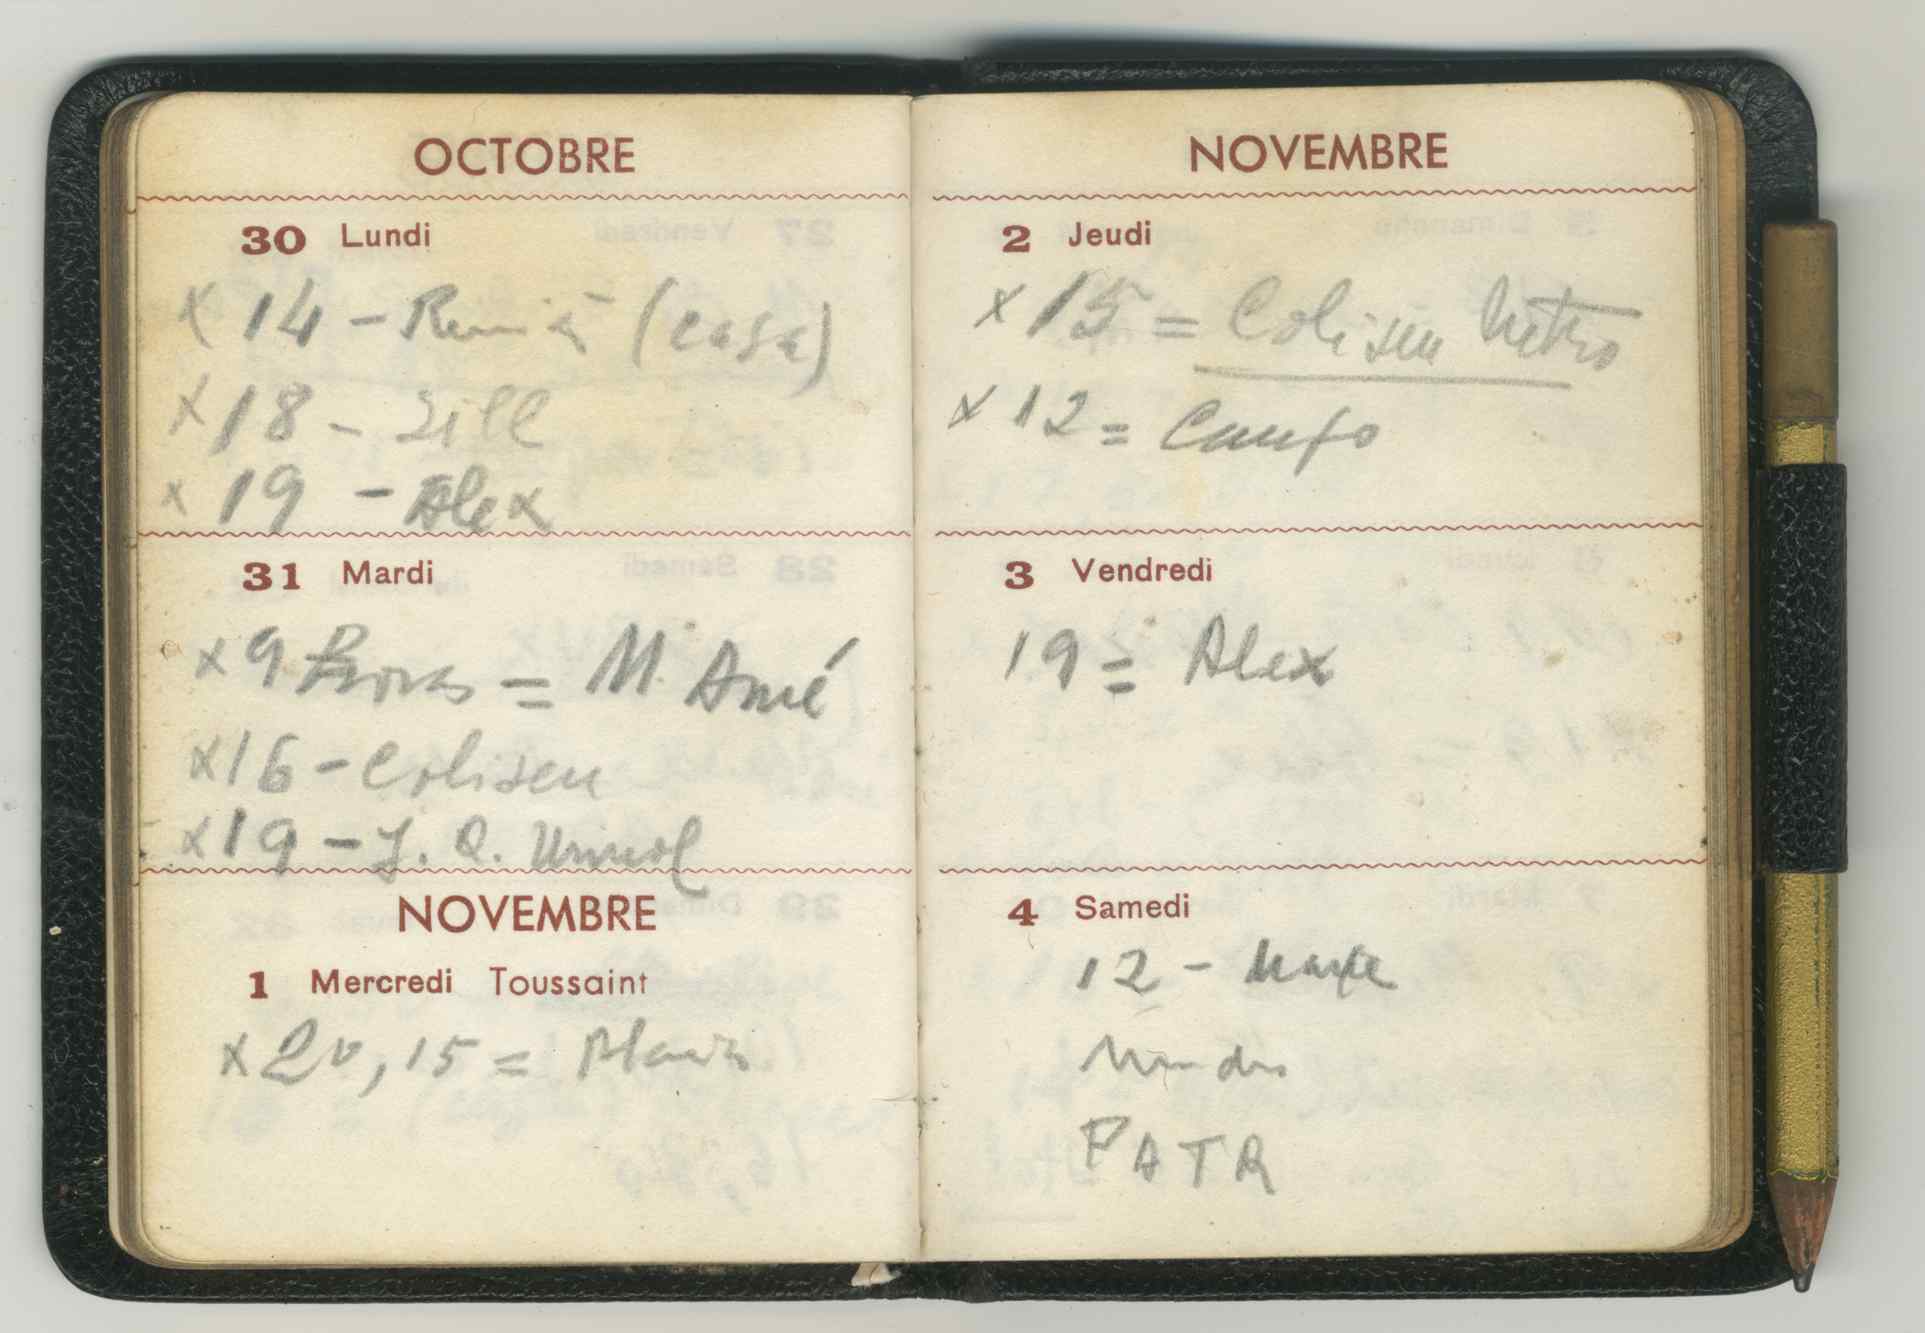 OCTOBRE
30 Lundi
x 14 - (casa)
x 18 - Sill
x 19 - Alex
31 Mardi
x 9 = M.
x 16 - Coliseu
x 19 - J. Q.
NOVEMBRE
1 Mercredi Toussaint
x 20,15 =
NOVEMBRE
2 Jeudi
x 15 = Coliseu Metro
x 12 =
3 Vendredi
19 = Alex
4 Samedi
12 -
FATR